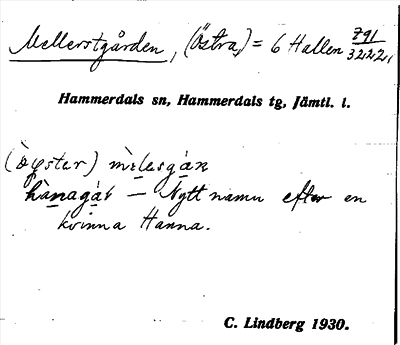 Mellerstgården, (Östra) = 6 Hallen 791/3222,
Hammerdals sn, Hammerdals tg, Jämtl. l.
mìlesgàṇ
hànagáṛ — Nytt namn efter en
kvinna Hanna.
C. Lindberg 1930.